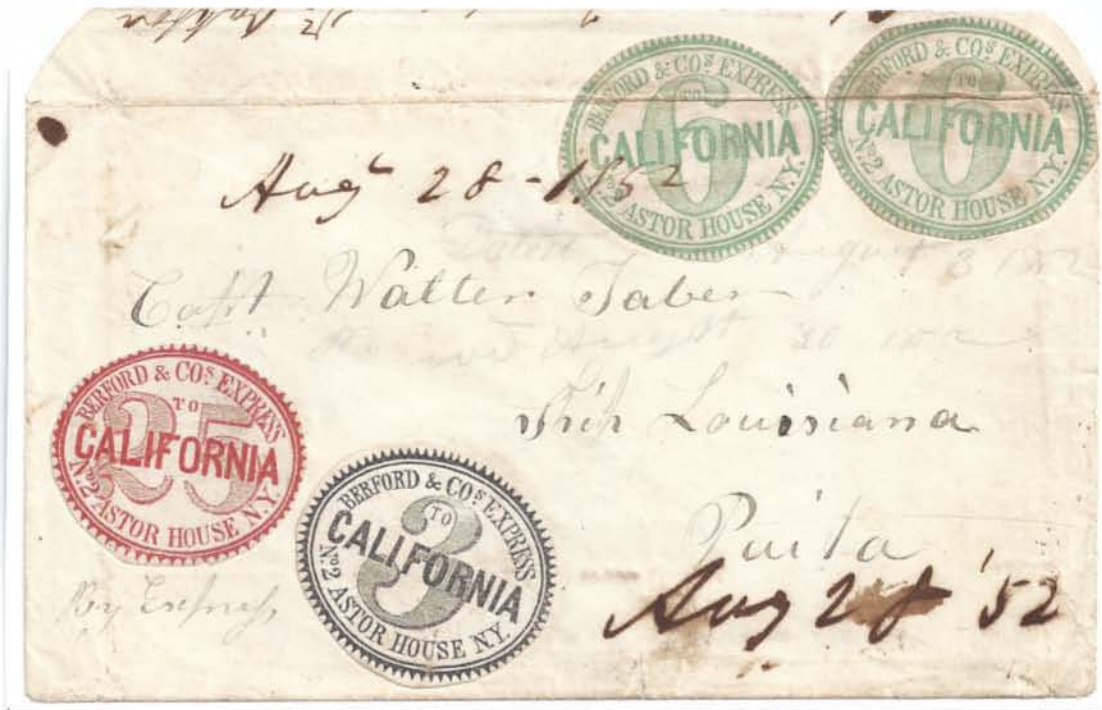 BERFORD & COS EXPRESS
6
TO
CALIFORNIA
No2 ASTOR HOUSE N.Y.
BERFORD & COS EXPRESS
6
TO
CALIFORNIA
No2 ASTOR HOUSE N.Y.
Augt 28-1852
August 3
Capt Walter Taber
August 30
Ship Louisiana
BERFORD & COS EXPRESS
25
TO
CALIFORNIA
No2 ASTOR HOUSE N.Y.
BERFORD & COS EXPRESS
3
TO
CALIFORNIA
No2 ASTOR HOUSE N.Y.
Paita
By Express
Aug 28 '52